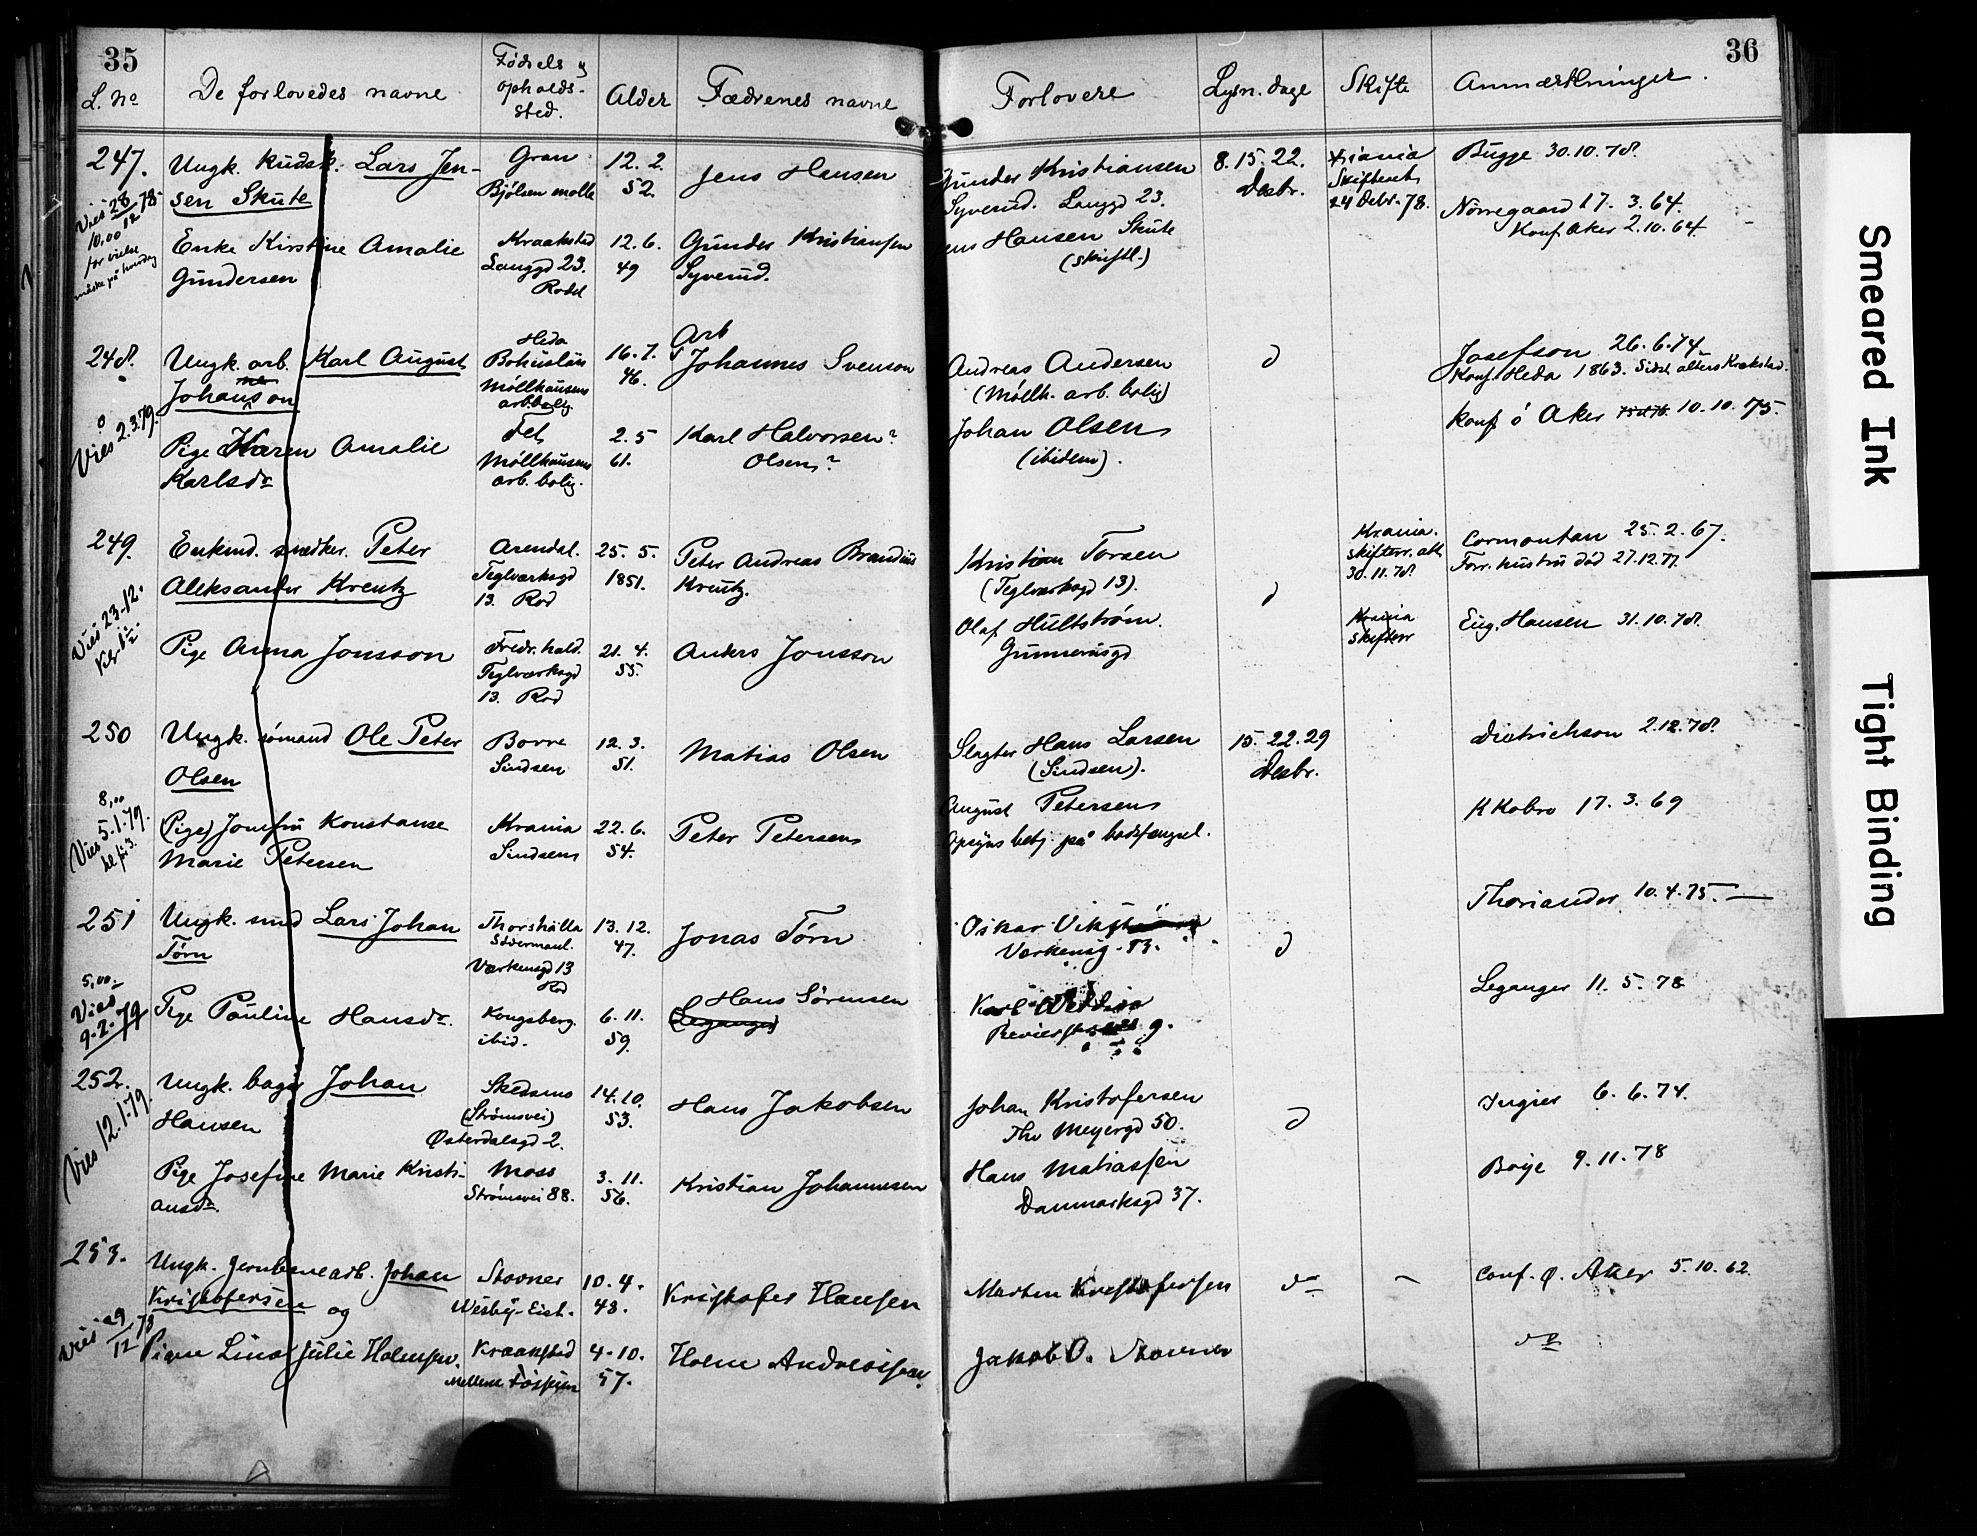 35
L. No
De forlovedes navne
Fødsels og
opholds-
sted.
Alder
Fædrenes navne
Forlovere
Lysn. dage
Skifte
Anmærkninger.
36
247.
Vies 28/12 78
10.00
før vielse
måske på handag
Ungk. kudsk. Lars Jen-
sen Skute
Gran
Bjølsen mølle
12. 2.
52.
Jens Hansen
Gunder Kristiansen
Syverud. Langgd 23.
8. 15. 22.
Desbr.
Skifteret
24 Debr. 78.
Bugge 30.10.78.
Enke Kirstine Amalie
Gundersen
Kraakstad
Langgd 23.
Rodel
12. 6.
49
Gunder Kristiansen
Syverud.
Jens Hansen Skute
(skriftl.)
Nørregaard 17. 3. 64.
Konf. Aker 2.10.64.
248.
Vies 2.3.79.
Ungk. arb. Karl August
Johanson
Heda
Bohuslän
Möllhausens
arb.bolig.
16. 7.
46.
Arb
Johannes Svenson
Andreas Andersen
(Möllh. arb. bolig)
Josefson 26.6.74
Konf. Heda 1863.
Pige Karen Amalie
Karlsdr
Fet
Möllhausens
arb. bolig.
2. 5
61.
Karl Halvorsen?
Olsen?
Johan Olsen
(ibidem).
konf i Aker 10.10.75.
249.
Vies 23.12.
Enkmd. snedker. Peter
Aleksander Kreutz
Arendal.
Teglverksgd
13. Rod
25. 5.
1851.
Peter Andreas Brandius
Kreutz.
Kristian Torsen
(Teglverksgd 13).
Krania.
skifterr. att
30.11.78
Cormontan 25.2.67.
Forr. hustru död 27.12.77.
Pige Anna Jonsson
Fredr.hald.
Teglverksgd
13. Rod
21. 4.
55.
Anders Jonsson
Olaf Hultstrøm.
Gunnerusgd
Krania
skifterr
Eug. Hansen 31.10.78.
250
8,00
Vies 5.1.79.
kl. 3.
Ungk. sømand Ole Peter
Olsen
Borre
Sindsen
12. 3.
51.
Matias Olsen
Slagter Hans Larsen
(Sindsen).
15. 22. 29
Desbr.
Dietrichson 2.12.78.
(Pige) Jomfru Konstanse
Marie Petersen
Krania
Sindsen
22. 6.
54.
Peter Petersen
August Petersen
Opsyns betj. på bodsfængsel.
K Kobro 17. 3. 69
251
5,00
Vies
9.2.79
Ungk. smed Lars Johan
Törn
Thorshälla
Södermanl.
Værkensgd 13
Rod
13. 12.
47.
Jonas Törn
Oskar
Værkensg. 13.
Thoriander 10.4.75.
Pige Pauline Hansdr.
Kongsberg.
ibid.
6. 11.
59.
Hans Sörensen
(Leganger)
Karl
9.
Leganger 11. 5. 78
252.
Vies 12.1.79.
Ungk. bager Johan
Hansen
Skedsmo
(Strömsvei)
Østerdalsgd 2.
14. 10.
53.
Hans Jakobsen
Johan Kristofersen
Thv Meyergd 50.
Ingier 6. 6. 74.
Pige Josefine Marie Kristi-
ansdr.
Moss
Strömsvei 88.
3. 11.
56.
Kristian Johannesen
Hans Matiassen
Danmarksgd 37.
Boye 9.11.78
253.
Vies 29/12 78
Ungk. Jernbanearb. Johan
Kristofersen og
Stovner
10. 4.
48.
Kristofer Hansen
Martin Kristofersen
Conf. Ø. Aker 5.10.62.
Pigen Lina Julie Holmsen.
Kraakstad
4. 10.
57.
Holm Andreassen
Jakob O. Stovner
Smeared Ink
Tight Binding